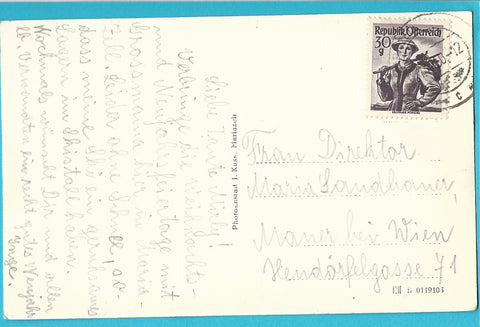 Liebe Tante Mirly!
Verbringe die Weihnachts-
und Neujahrsfeiertage mit
Grossmama hier in Maria-
zell. Leider ohne Schnee, so-
dass meine Ski ein
Lager im Skistall haben.
Nochmals wünscht Dir und allen
ein recht gutes Neujahr
Inge.
Photoanstalt J. Kuss, Mariazell
Republik Österreich
30
g
12
c
Frau Direktor
Maria Landhauer,
Mauer bei Wien
Hendörfelgasse 71
B 0119103